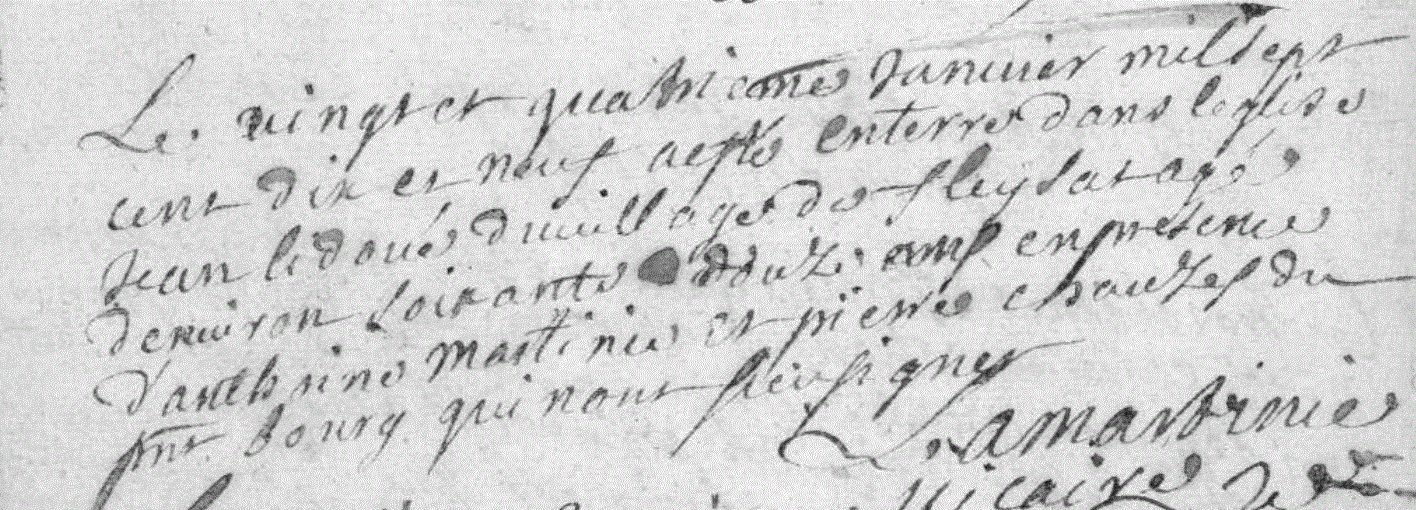 Le vingt et quatrieme Januier mil sept
cent dix et neuf a esté enterré dans leglise
Jean lidoué du uillage de fleysat agé
denuiron soixante douze ans en presence
d'anthoine martinie et pierre chauzes du
pnt bourg qui nont sceu signer
Lamartinie
uicaire de